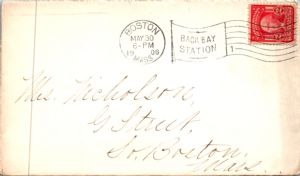 BOSTON
MAY 30
6-PM
1906
MASS.
BACK BAY
STATION
1
Mrs. Nicholson,
G Street,
So. Boston,
Mass.